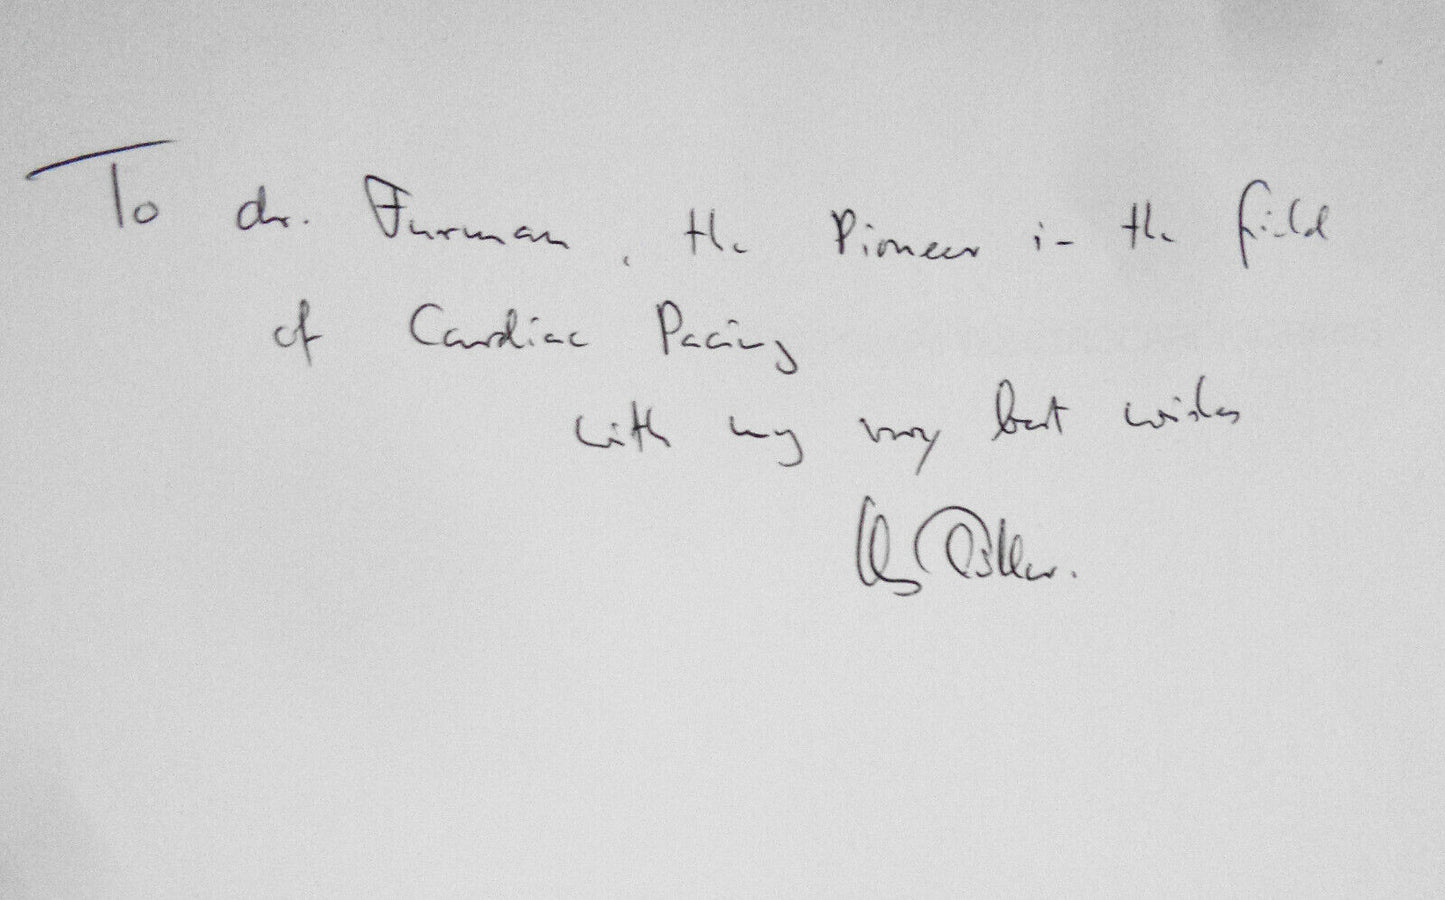 To dr. Furman, the Pioneer in the field
of Cardiac Pacing
with my very best wishes